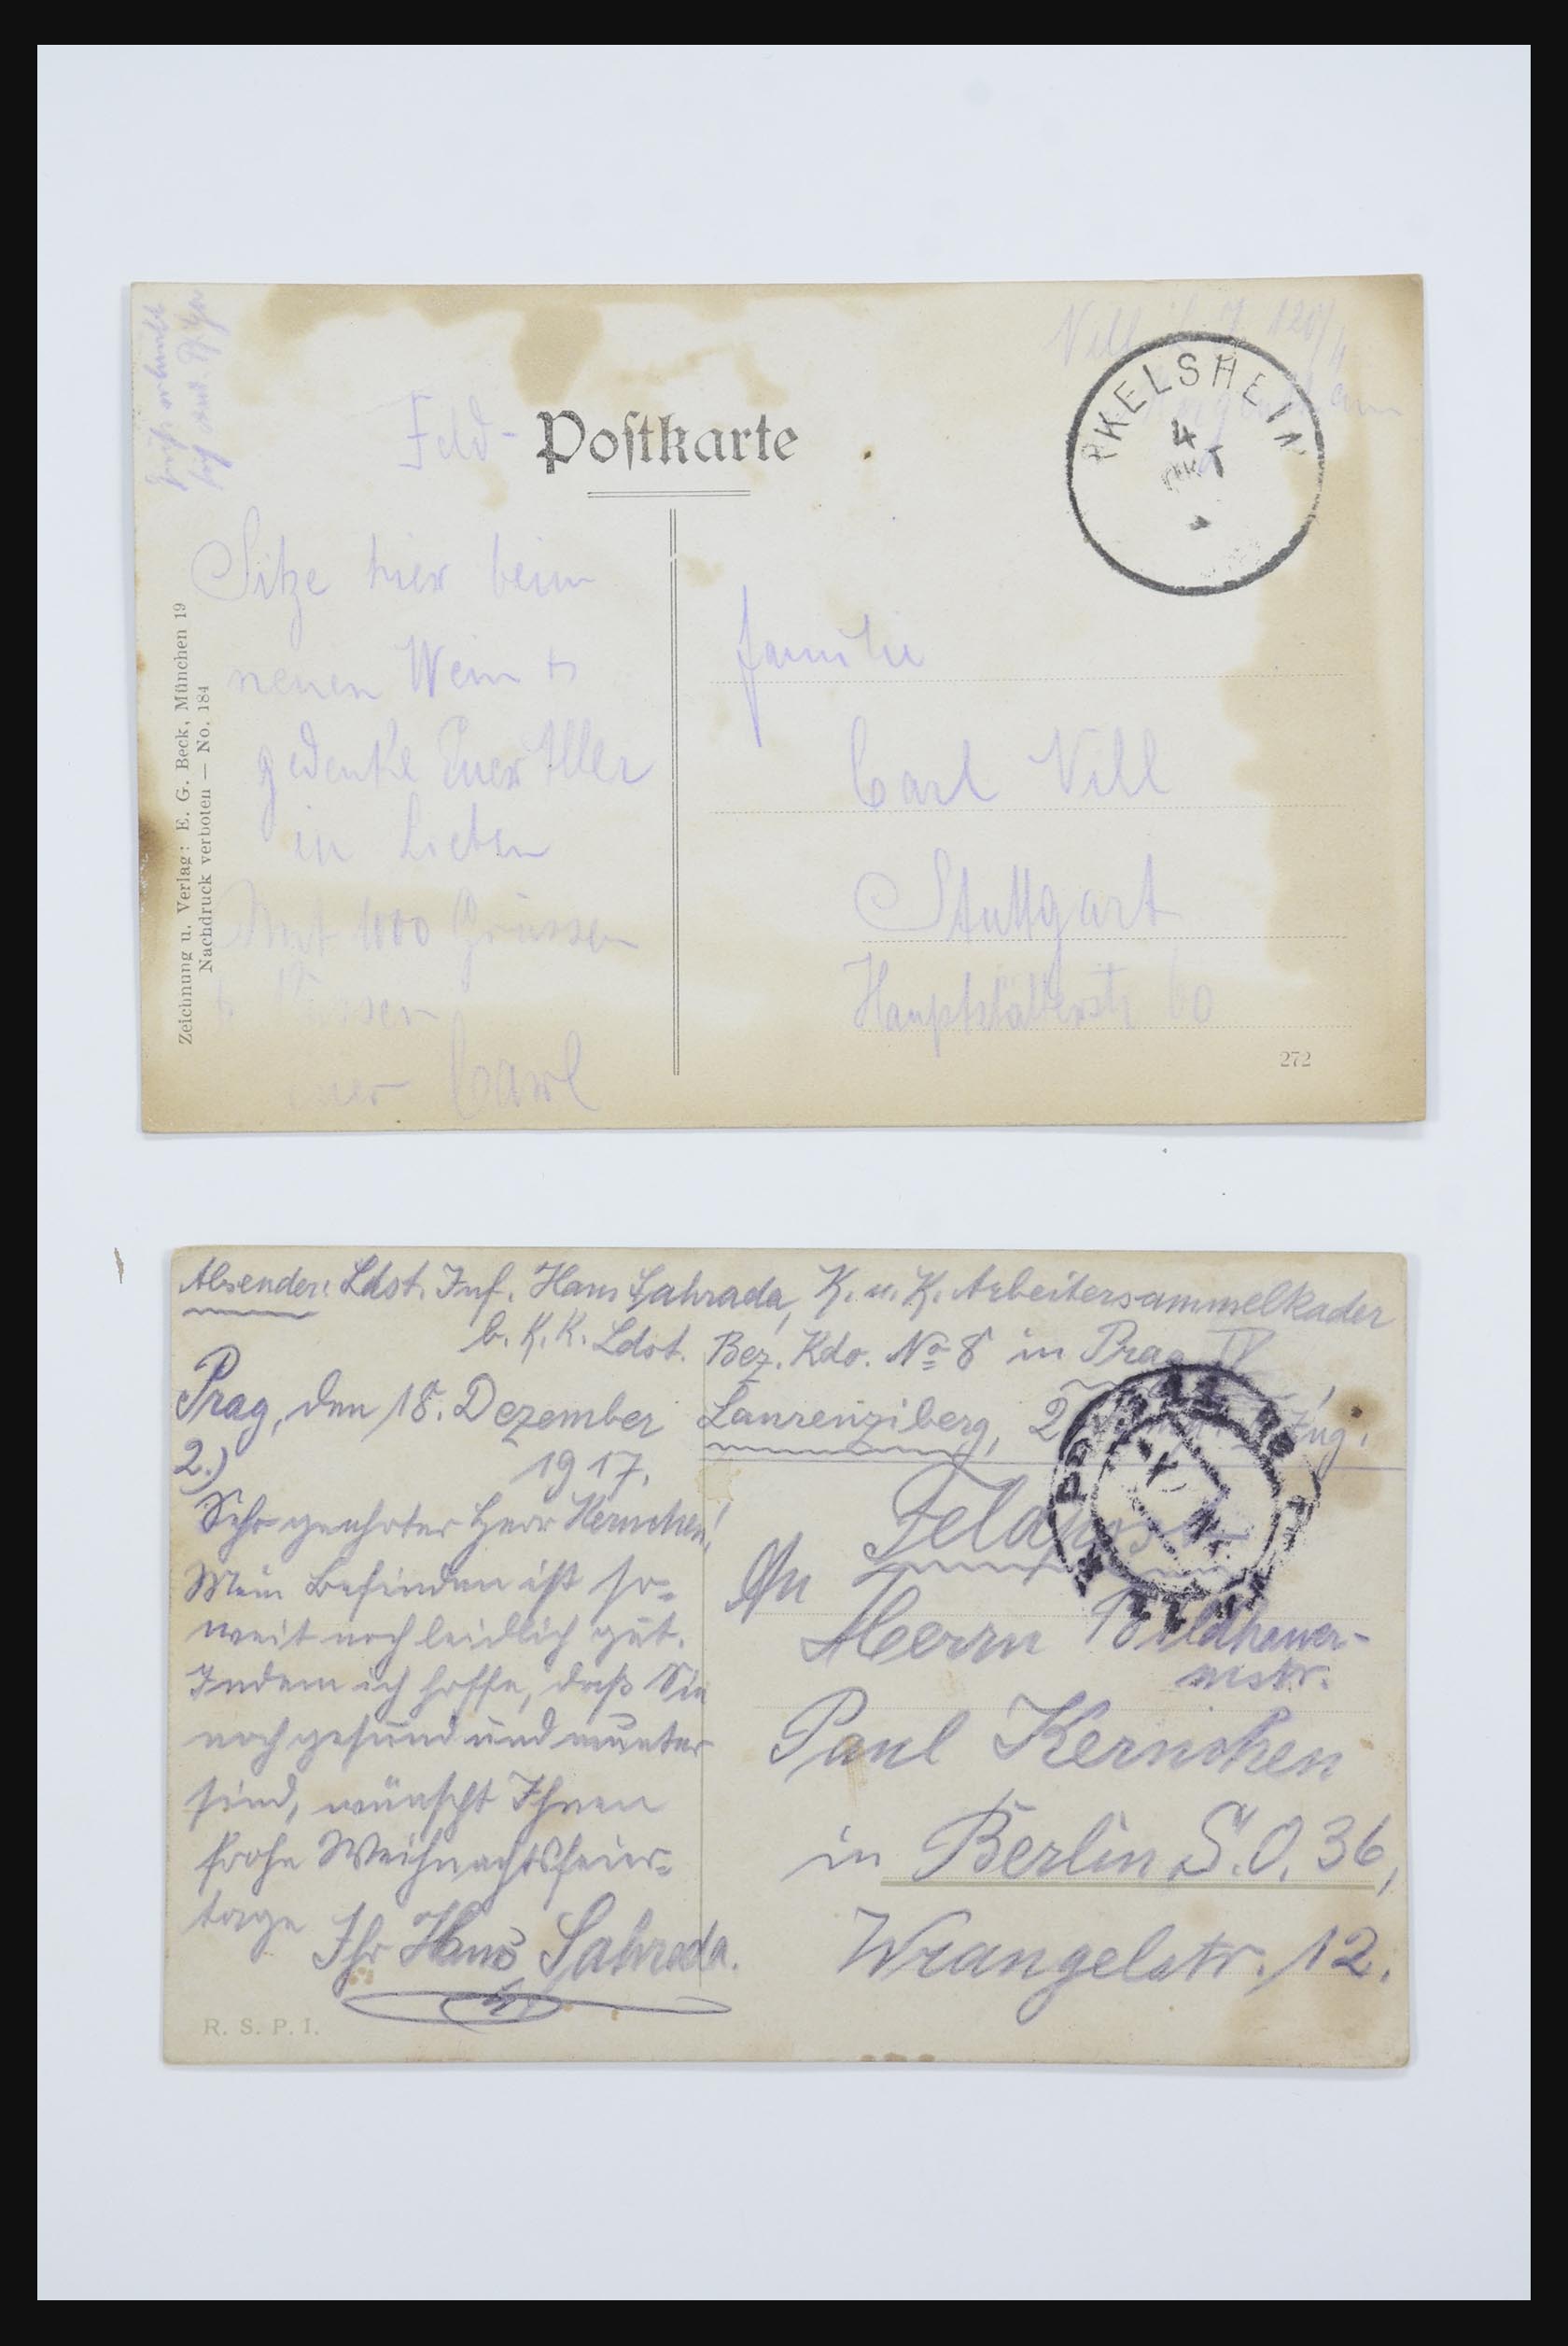 Feld-
Postkarte
RKELSHEIM
4
OKT
Sitze hier beim
neuen Wein
gedenke Euer Aller
in Lieben
Mit 1000 Grüssen
Küssen
euer Carl
Familie
Carl Vill
Stuttgart
Hauptstätterstr 60
272
Zeichnung u. Verlag: E. G. Beck, München 19
Nachdruck verboten — No. 184
Absender: Ldst. Inf. Hans Sahrada, K. u. K. Arbeitersammelkader
b. K. K. Ldst. Bez. Kdo. No 8 in Prag IV
Laurenziberg, 2 Zug.
Prag, den 18. Dezember
1917.
2.)
Sehr geehrter Herr Kernchen!
Mein Befinden ist so-
weit noch leidlich gut.
Indem ich hoffe, daß Sie
noch gesund und munter
sind, wünscht Ihnen
frohe Weihnachtsfeier-
tage Ihr Hans Sahrada.
Feldpost
An
Herrn Bildhauer-
mstr.
Paul Kernchen
in Berlin S.O. 36,
Wrangelstr. 12.
R. S. P. I.